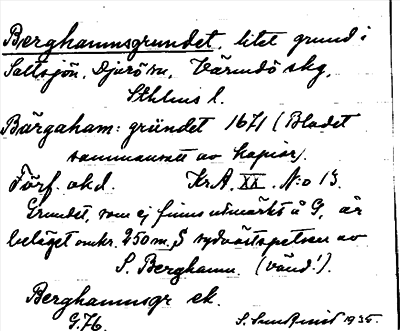 Berghamnsgrundet, litet grund i
Saltsjön, Djurö sn, Värmdö skg,
Sthlms l.
Bärgaham: gründet 1671 (Bladet
sammansatt av kopior).
Förf. okd. KrA. XX. N:o 13.
Grundet, som ej finns utmärkt å G, är
beläget omkr. 250 m. S sydvästspetsen av
S. Berghamn. (vänd!).
Berghamnsgr ek.
G.76. S. 1935